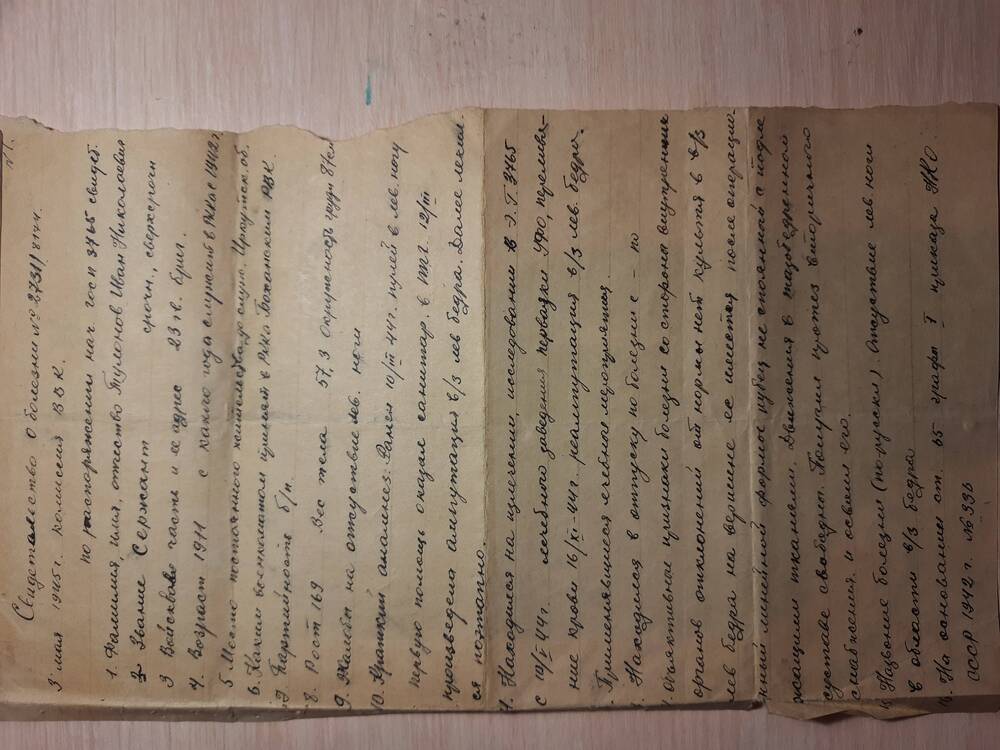 №1.
Свидетельство о болезни № 2731/8177.
3 мая 1945г. комиссия ВВК.
по распоряжении нач. госп 3765 свидет.
1. Фамилия, имя, отчество Тулонов Иван Николаевич
2 Звание Сержант срочн., сверхсрочн
3 Войсковая часть и ее адрес 23 гв. бриг.
4. Возраст 1911 с какого года служит в РККа с 1942г.
5 Место постоянного жительства до служ. Иркутск. об.
6. Каким военкоматом принят в РККа Боханским РВК.
7. Партийность б/п.
8. Рост 169 Вес тела 57,3 окружность груди 87см
9. Жалобы на отсуствие лев. ноги
10. Краткий анамнез: Ранен 10/III 44г. пулей в лев. ногу
первую помощь оказал санитар. в ППГ. 12/III
произведела ампутация в/з лев бедра. Далее лечил-
ся поэтапно.
Находился на излечении, исследовании в Э.Г. 3765
с 10/V 44г. лечебного заведения первязки УФО, перелива-
ние крови 16/XI-44г. реампутация в/з лев. бедра.
Применявщиеся лечебные мероприятия.
Находился в отпуску по болезни с – по
Объяктивные признаки болезни со стороны внутренних
органов отклонений от нормы нет культя в в/з
лев бедра на вершине ее имется после операцио-
нный линейной формы рубец не споянный с подле
жащими тканями. Движения в тазобедренном
суставе свободны. Получил протез вторичного
снабжения. и освоил его.
Назвоние болезни (по-русски). Отсуствие лев. ноги
в области в/з бедра
На основании ст. 65 графы I приказа НКО
СССР 1942г. №336